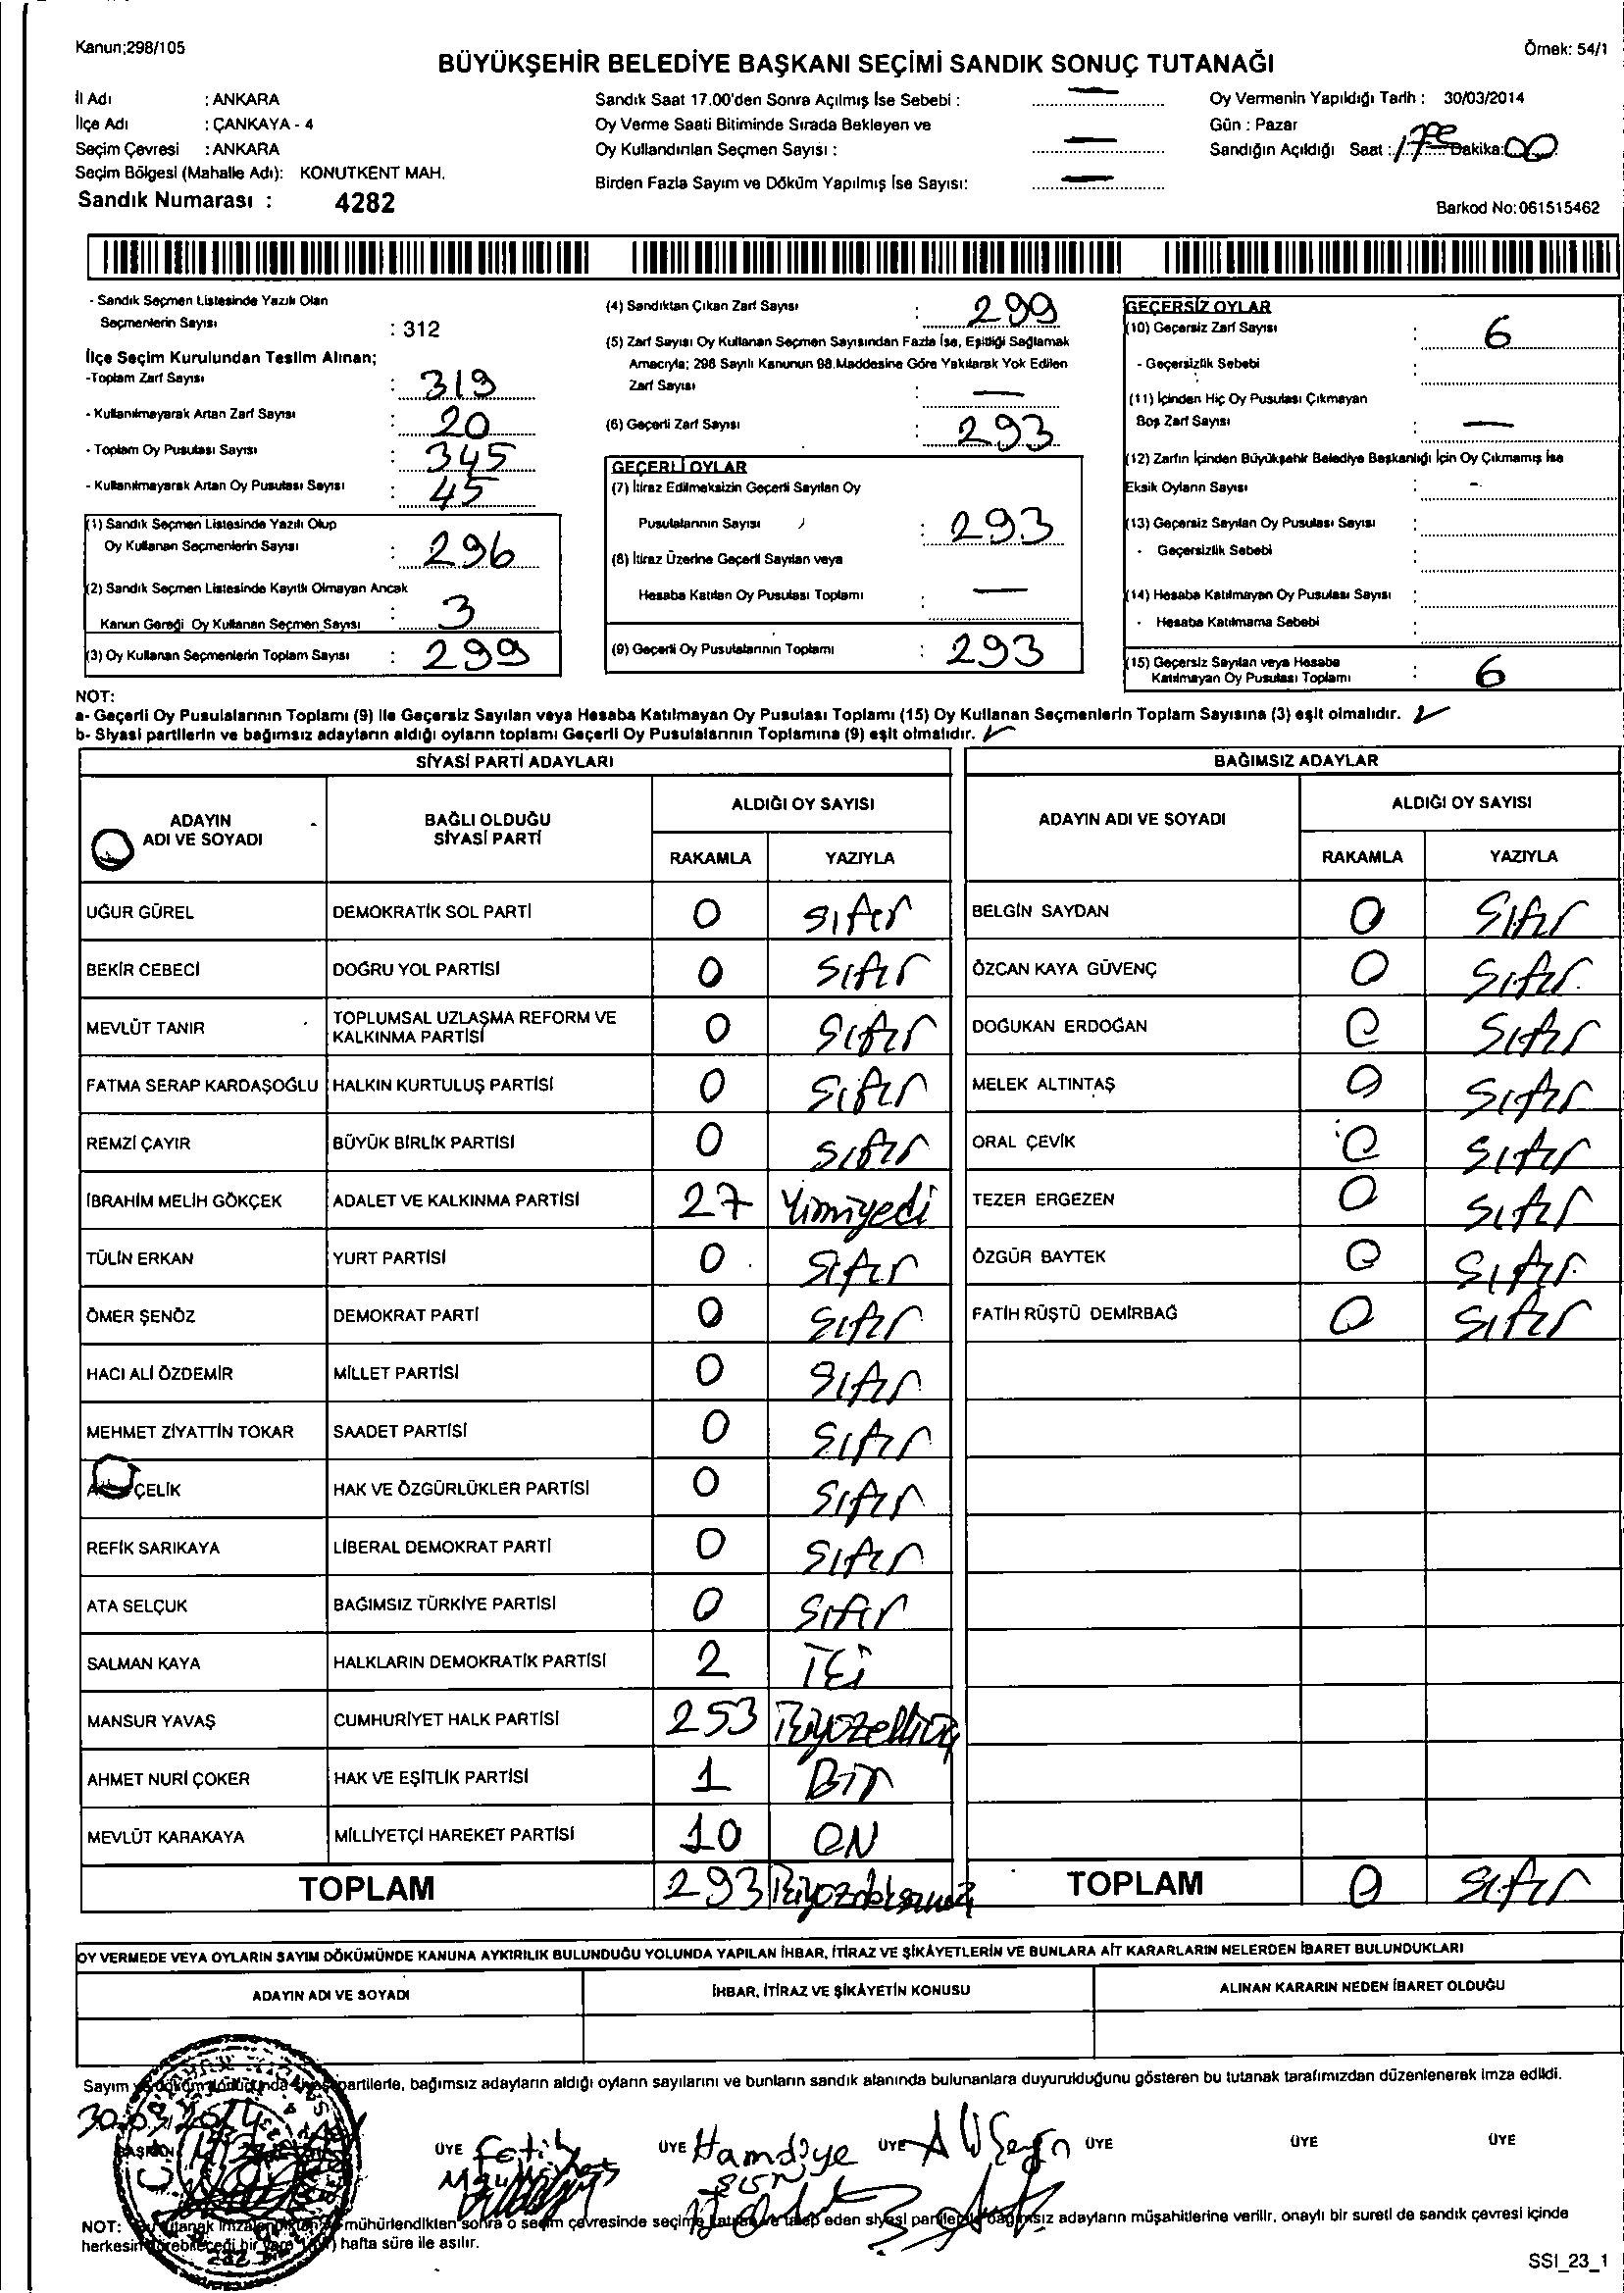 Kanun;298/105
Örnek: 54/1
BÜYÜKŞEHİR BELEDİYE BAŞKANI SEÇİMİ SANDIK SONUÇ TUTANAĞI
İl Adı : ANKARA
İlçe Adı : ÇANKAYA - 4
Seçim Çevresi : ANKARA
Seçim Bölgesi (Mahalle Adı): KONUTKENT MAH.
Sandık Numarası : 4282
Sandık Saat 17.00'den Sonra Açılmış İse Sebebi : —
Oy Verme Saati Bitiminde Sırada Bekleyen ve
Oy Kullandırılan Seçmen Sayısı : —
Birden Fazla Sayım ve Döküm Yapılmış İse Sayısı: —
Oy Vermenin Yapıldığı Tarih : 30/03/2014
Gün : Pazar
Sandığın Açıldığı Saat : 17 Dakika: 00
Barkod No:061515462
- Sandık Seçmen Listesinde Yazılı Olan
Seçmenlerin Sayısı : 312
İlçe Seçim Kurulundan Teslim Alınan;
-Toplam Zarf Sayısı : 319
- Kullanılmayarak Artan Zarf Sayısı : 20
- Toplam Oy Pusulası Sayısı : 345
- Kullanılmayarak Artan Oy Pusulası Sayısı : 45
(1) Sandık Seçmen Listesinde Yazılı Olup
Oy Kullanan Seçmenlerin Sayısı : 296
(2) Sandık Seçmen Listesinde Kayıtlı Olmayan Ancak
Kanun Gereği Oy Kullanan Seçmen Sayısı : 3
(3) Oy Kullanan Seçmenlerin Toplam Sayısı : 299
(4) Sandıktan Çıkan Zarf Sayısı : 299
(5) Zarf Sayısı Oy Kullanan Seçmen Sayısından Fazla İse, Eşitliği Sağlamak
Amacıyla; 298 Sayılı Kanunun 98.Maddesine Göre Yakılarak Yok Edilen
Zarf Sayısı : —
(6) Geçerli Zarf Sayısı : 293
GEÇERLİ OYLAR
(7) İtiraz Edilmeksizin Geçerli Sayılan Oy
Pusulalarının Sayısı : 293
(8) İtiraz Üzerine Geçerli Sayılan veya
Hesaba Katılan Oy Pusulası Toplamı : —
(9) Geçerli Oy Pusulalarının Toplamı : 293
GEÇERSİZ OYLAR
(10) Geçersiz Zarf Sayısı : 6
- Geçersizlik Sebebi
(11) İçinden Hiç Oy Pusulası Çıkmayan
Boş Zarf Sayısı : —
(12) Zarfın İçinden Büyükşehir Belediye Başkanlığı İçin Oy Çıkmamış İse
Eksik Oyların Sayısı : -
(13) Geçersiz Sayılan Oy Pusulası Sayısı :
- Geçersizlik Sebebi
(14) Hesaba Katılmayan Oy Pusulası Sayısı :
- Hesaba Katılmama Sebebi
(15) Geçersiz Sayılan veya Hesaba
Katılmayan Oy Pusulası Toplamı : 6
NOT:
a- Geçerli Oy Pusulalarının Toplamı (9) ile Geçersiz Sayılan veya Hesaba Katılmayan Oy Pusulası Toplamı (15) Oy Kullanan Seçmenlerin Toplam Sayısına (3) eşit olmalıdır. ✓
b- Siyasi partilerin ve bağımsız adayların aldığı oyların toplamı Geçerli Oy Pusulalarının Toplamına (9) eşit olmalıdır. ✓
SİYASİ PARTİ ADAYLARI
ADAYIN ADI VE SOYADI BAĞLI OLDUĞU SİYASİ PARTİ ALDIĞI OY SAYISI
RAKAMLA YAZIYLA
UĞUR GÜREL DEMOKRATİK SOL PARTİ 0 Sıfır
BEKİR CEBECİ DOĞRU YOL PARTİSİ 0 Sıfır
MEVLÜT TANIR TOPLUMSAL UZLAŞMA REFORM VE KALKINMA PARTİSİ 0 Sıfır
FATMA SERAP KARDAŞOĞLU HALKIN KURTULUŞ PARTİSİ 0 Sıfır
REMZİ ÇAYIR BÜYÜK BİRLİK PARTİSİ 0 Sıfır
İBRAHİM MELİH GÖKÇEK ADALET VE KALKINMA PARTİSİ 27 Yirmiyedi
TÜLİN ERKAN YURT PARTİSİ 0 Sıfır
ÖMER ŞENÖZ DEMOKRAT PARTİ 0 Sıfır
HACI ALİ ÖZDEMİR MİLLET PARTİSİ 0 Sıfır
MEHMET ZİYATTİN TOKAR SAADET PARTİSİ 0 Sıfır
ÇELİK HAK VE ÖZGÜRLÜKLER PARTİSİ 0 Sıfır
REFİK SARIKAYA LİBERAL DEMOKRAT PARTİ 0 Sıfır
ATA SELÇUK BAĞIMSIZ TÜRKİYE PARTİSİ 0 Sıfır
SALMAN KAYA HALKLARIN DEMOKRATİK PARTİSİ 2 İki
MANSUR YAVAŞ CUMHURİYET HALK PARTİSİ 253 İkiyüzelliüç
AHMET NURİ ÇOKER HAK VE EŞİTLİK PARTİSİ 1 Bir
MEVLÜT KARAKAYA MİLLİYETÇİ HAREKET PARTİSİ 10 ON
TOPLAM 293 İkiyüzdoksanüç
BAĞIMSIZ ADAYLAR
ADAYIN ADI VE SOYADI ALDIĞI OY SAYISI
RAKAMLA YAZIYLA
BELGİN SAYDAN 0 Sıfır
ÖZCAN KAYA GÜVENÇ 0 Sıfır
DOĞUKAN ERDOĞAN 0 Sıfır
MELEK ALTINTAŞ 0 Sıfır
ORAL ÇEVİK 0 Sıfır
TEZER ERGEZEN 0 Sıfır
ÖZGÜR BAYTEK 0 Sıfır
FATİH RÜŞTÜ DEMİRBAĞ 0 Sıfır
TOPLAM 0 Sıfır
OY VERMEDE VEYA OYLARIN SAYIM DÖKÜMÜNDE KANUNA AYKIRILIK BULUNDUĞU YOLUNDA YAPILAN İHBAR, İTİRAZ VE ŞİKÂYETLERİN VE BUNLARA AİT KARARLARIN NELERDEN İBARET BULUNDUKLARI
ADAYIN ADI VE SOYADI İHBAR, İTİRAZ VE ŞİKÂYETİN KONUSU ALINAN KARARIN NEDEN İBARET OLDUĞU
Sayım partilerle, bağımsız adayların aldığı oyların sayılarını ve bunların sandık alanında bulunanlara duyurulduğunu gösteren bu tutanak tarafımızdan düzenlenerek imza edildi.
30.03.2014
BAŞKAN ÜYE Fatih ÜYE Hamdiye ÜYE ÜYE ÜYE ÜYE
NOT: tutanak mühürlendikten sonra o seçim çevresinde seçime eden siyasi bağımsız adayların müşahitlerine verilir, onaylı bir sureti de sandık çevresi içinde
herkesin bir hafta süre ile asılır.
SSI_23_1